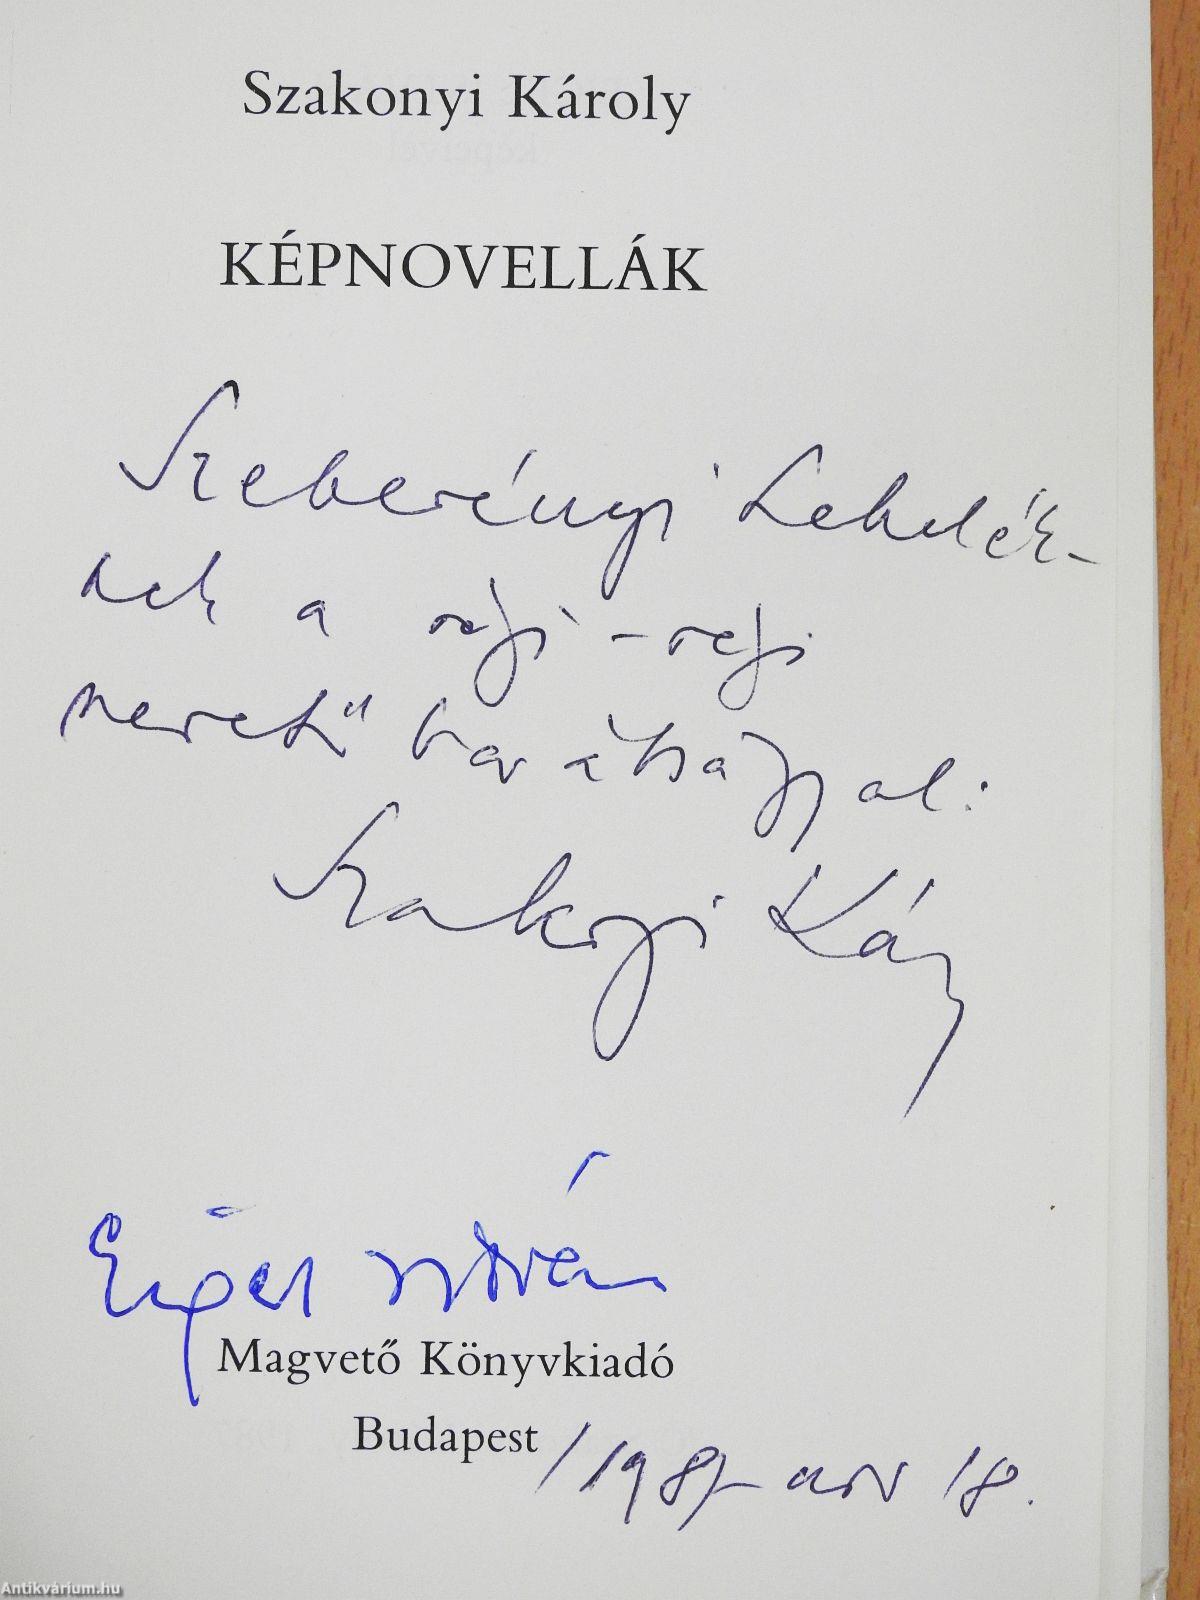 Szakonyi Károly
KÉPNOVELLÁK
Szeberényi Lehelék-
nek a régi-régi
szeretű barátsággal:
Szakonyi Károly
István
Magvető Könyvkiadó
Budapest /1987 nov 18.
Antikvárium.hu